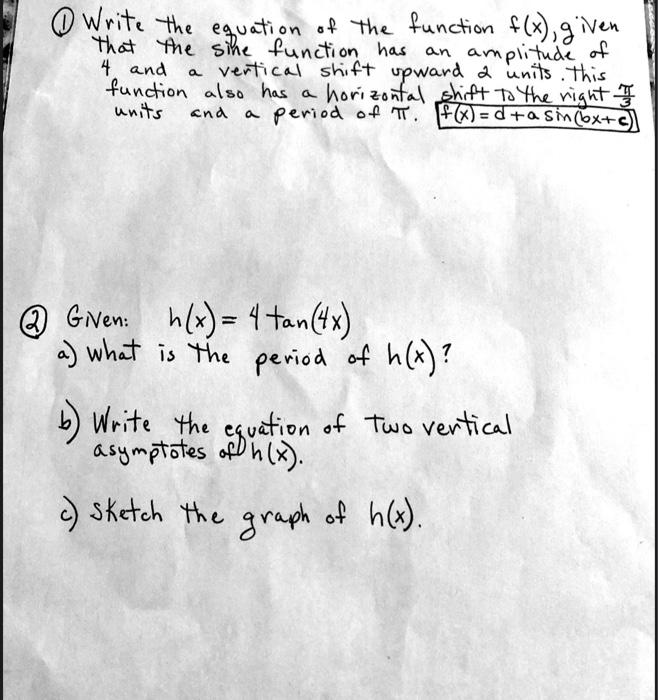 ① Write the equation of the function f(x), given
that the sine function has an amplitude of
4 and a vertical shift upward 2 units. This
function also has a horizontal shift to the right π/3
units and a period of π. f(x) = d + a sin(bx+c)
② Given: h(x) = 4 tan(4x)
a) What is the period of h(x)?
b) Write the equation of two vertical
asymptotes of h(x).
c) Sketch the graph of h(x).